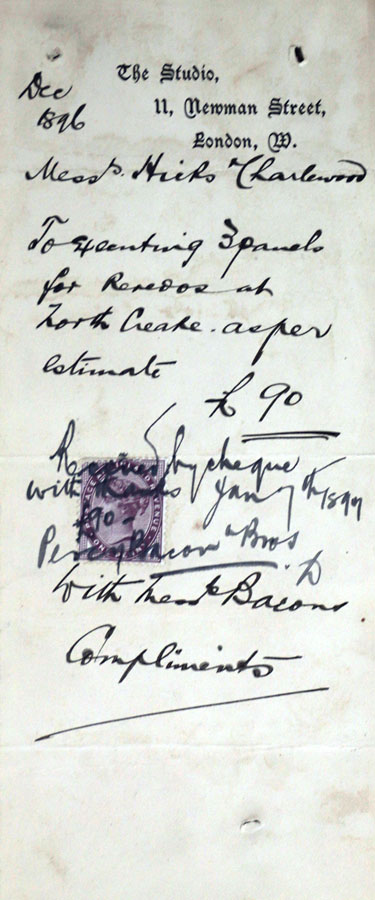 The Studio,
11, Newman Street,
London, W.
Dec
1896
Messrs. Hicks & Charlewood
To Executing 3 panels
for Reredos at
North Creake. as per
estimate
£ 90
Received by cheque
with thanks Jany 7th 1897
£90 –
Percy Bacon & Bros
With Bacons
Compliments